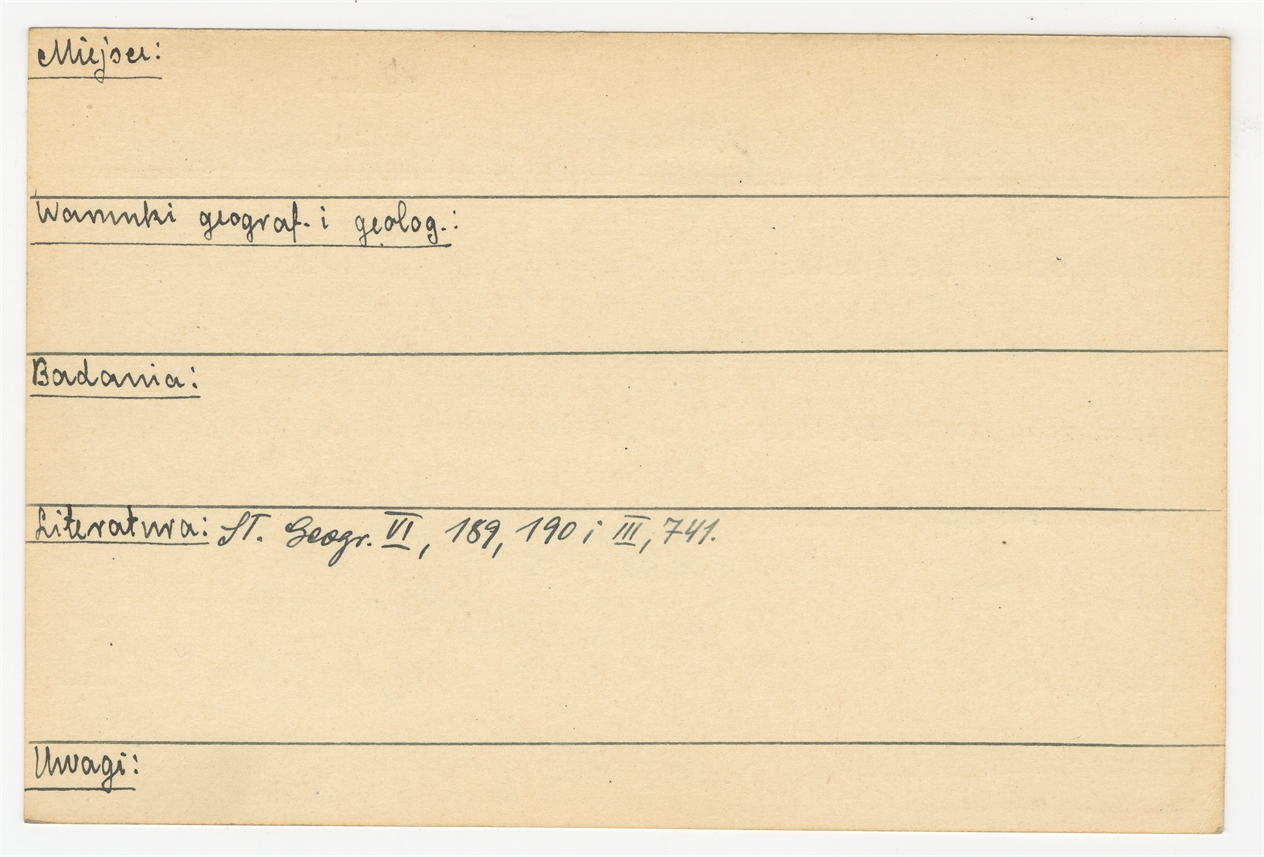 Miejsce:
Warunki geograf. i geolog.:
Badania:
Literatura: Sł. Geogr. VI, 189, 190 i III, 741.
Uwagi: